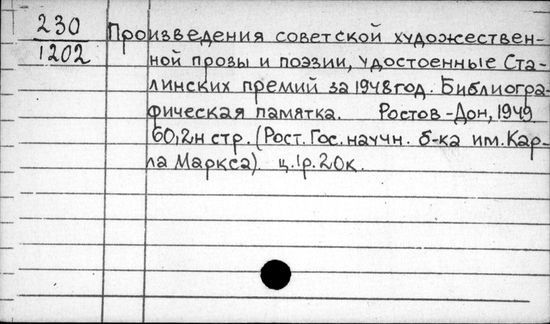 230
1202
Произведения советской художествен-
ной прозы и поэзии, удостоенные Ста-
линских премий за 1948 год. Библиогра-
фическая памятка. Ростов-Дон, 1949
60,2н стр. (Рост. Гос. научн. б-ка им. Кар-
ла Маркса). ц. 1р. 20к.